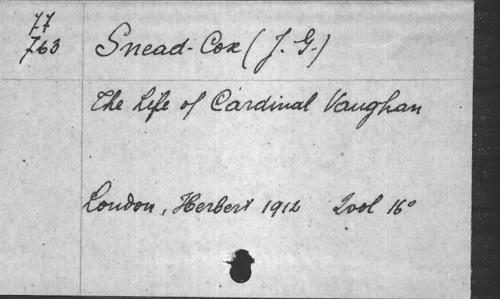 77
763
Snead-Cox (J. G.)
The Life of Cardinal Vaughan
London, Herbert 1912 2vol 16°